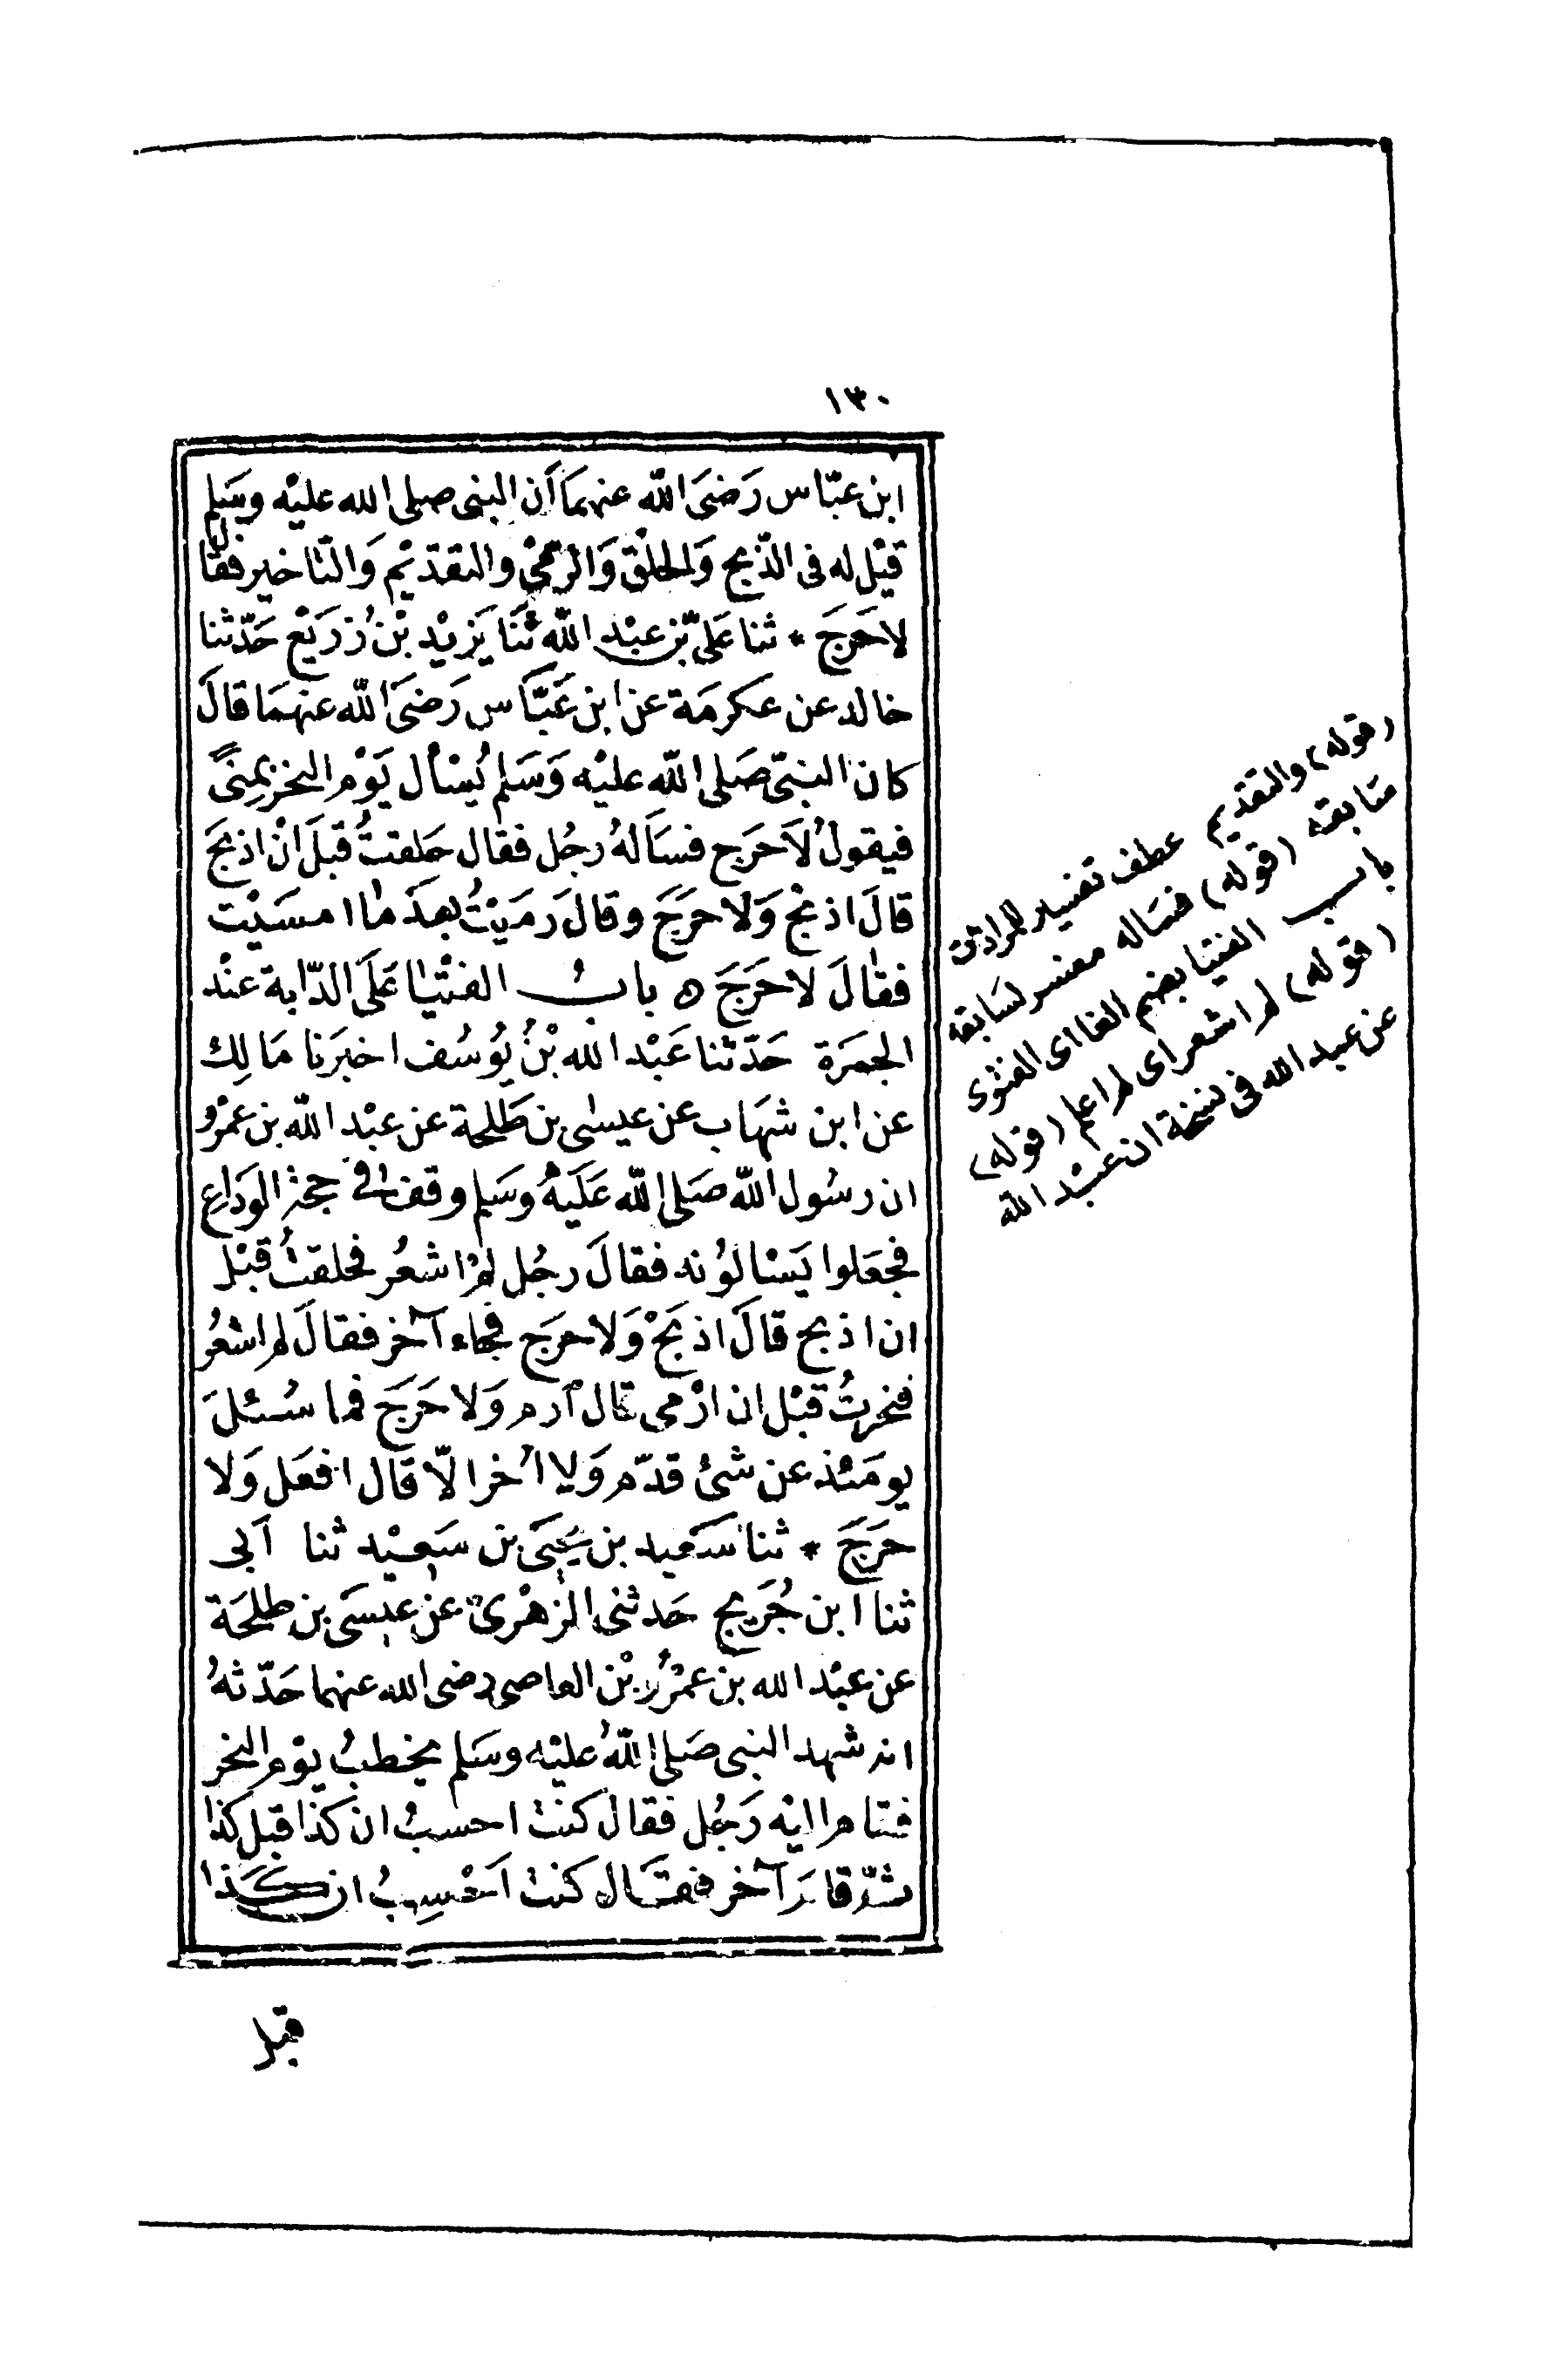 ١٣٠
ابن عبّاس رَضىَ الله عنهمَا أن النبى صلى الله عليْه وسَلم
قيْل له فى الذّبح وَالحلْق وَالرّمْىِ والتقديْم وَالتّاخير فقال
لاحَرَجَ * ثنا عَلىّ بن عبْد الله ثَنَا يَزيْد بْنُ زرَيْع حَدّثنا
خالد عن عكرمَة عن ابن عَبَّاس رَضىَ الله عنهمَا قالَ
كان النبىّ صَلى الله عليْه وَسَلم يُسْأل يَوْم النحر بمِنىً
فيقولُ لاَحَرَج فسَألهُ رجُل فقال حَلقتُ قبلَ انْ اذبحَ
قالَ اذبحْ وَلاحَرَجَ وقالَ رَمَيْتُ بعدَ مَا امسَيْت
فقالَ لاحَرَجَ ه بابُ الفتْيَا عَلَى الدّابة عنْد
الجمَرَة حَدّثنا عَبْد الله بْنُ يُوسُف اخبَرَنا مَالِك
عن ابن شهَاب عن عيسٰى بن طَلحة عن عبْد الله بن عمْرو
ان رسُول الله صَلى الله عَلَيْهُ وسَلم وقف فى حجة الوَدَاع
فجعَلوا يَسْالوُنه فقالَ رجُل لمْ اشعُر فحلقتُ قبْل
ان اذبح قالَ اذبَحْ وَلاحرَج فجاء آخر فقالَ لم اشعُر
فنحرتُ قبْل ان ارْمى قال آرم وَلاحَرَجَ فما سُئلَ
يومَئذ عن شئ قدّم وَلا اُخر الّا قال افعَل وَلا
حَرَجَ * ثنا سَعيد بن يَحيَى بن سَعيْد ثنا أبى
ثنا ابن جُرَيج حَدثنى الزهْرىّ عن عيسَى بن طلحَة
عن عبْد الله بن عمْرو بْن العاصى رضى الله عنهما حَدّثهُ
انه شهد النبى صَلى اللهُ عليْه وسَلم يخطبُ يوْم النحر
فقام اليْه رَجُل فقال كنت احسبُ ان كذا قبل كذا
ثمّ قامَ آخر فقَال كنت اَحْسِبُ ان كذا
قبل
(قوله) والتقديم عطف تفسير للمراد من
سَابقه (قوله) فسَاله مفسر لسَابقه
باب الفتيا بضم الفا اى الفتوى
(قوله) لم اشعر اى لم اعلم (قوله)
عن عبد الله فى نسخة ان عبْد الله